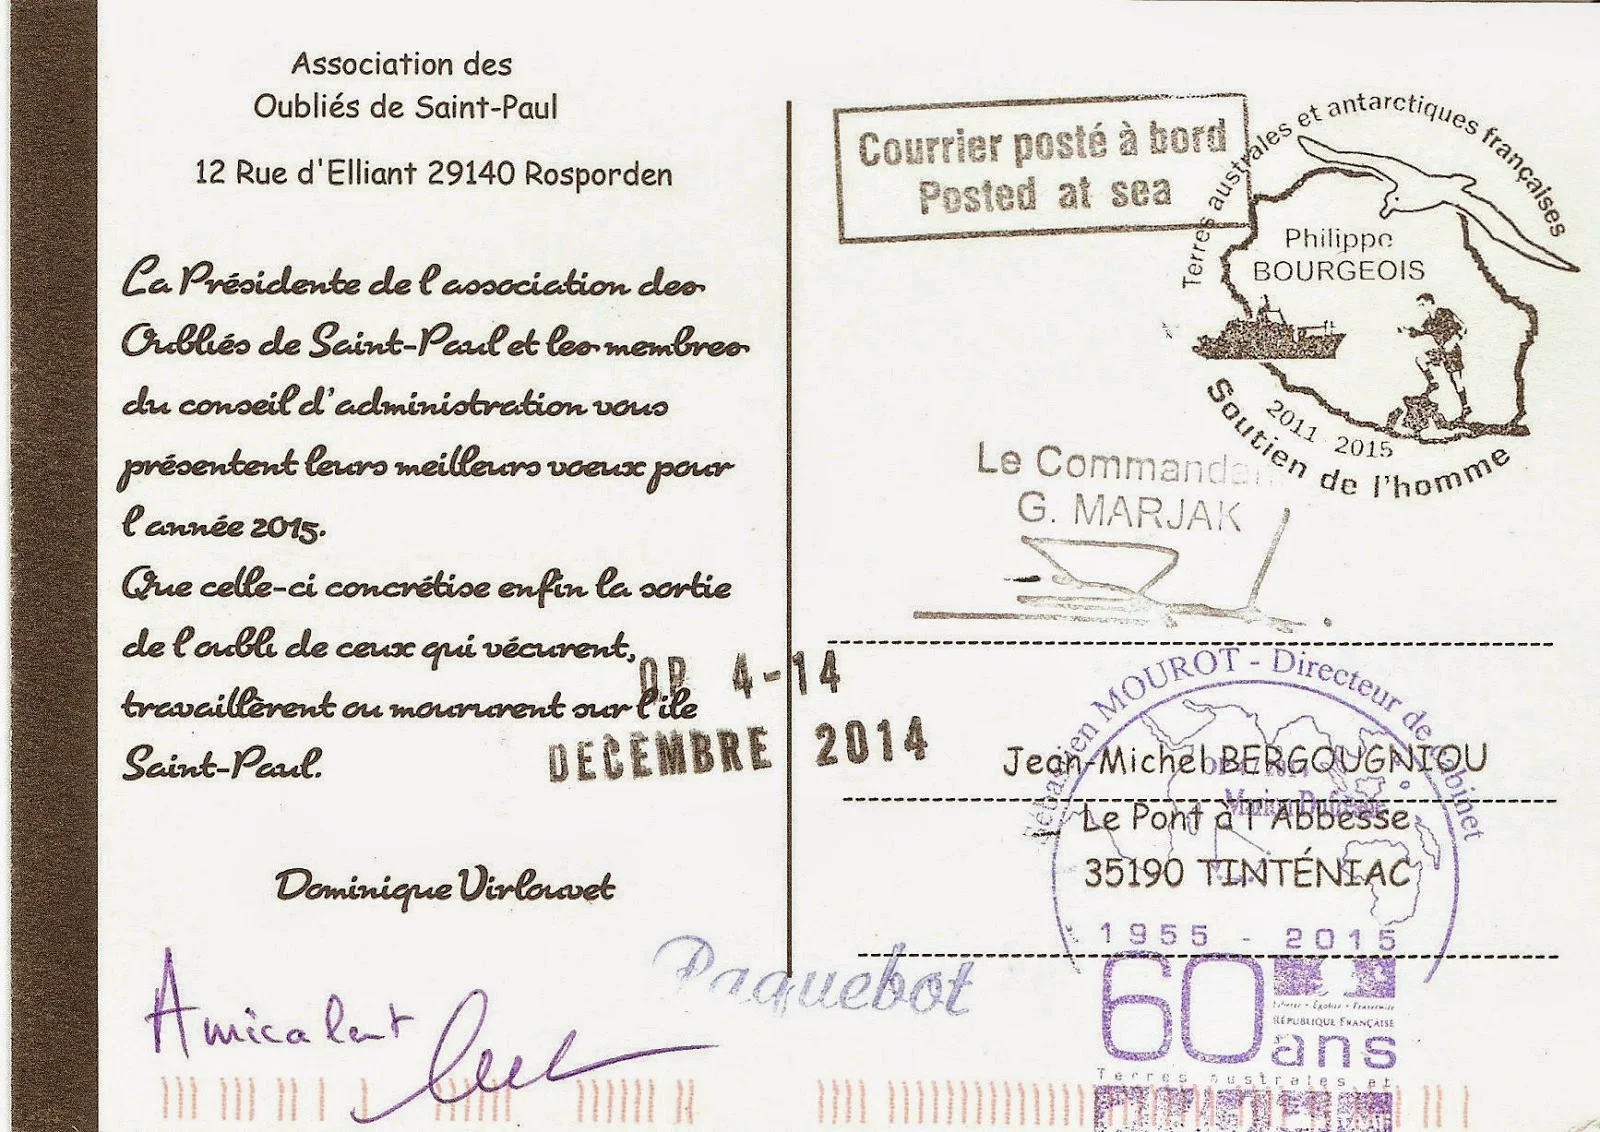 Association des
Oubliés de Saint-Paul
12 Rue d'Elliant 29140 Rosporden
La Présidente de l'association des
Oubliés de Saint-Paul et les membres
du conseil d'administration vous
présentent leurs meilleurs voeux pour
l'année 2015.
Que celle-ci concrétise enfin la sortie
de l'oubli de ceux qui vécurent,
travaillèrent ou moururent sur l'ile
Saint-Paul.
Dominique Virlouvet
Amicalement
OP 4-14
DECEMBRE 2014
Paquebot
Courrier posté à bord
Posted at sea
Terres australes et antarctiques françaises
Philippe
BOURGEOIS
2011 2015
Soutien de l'homme
Le Commandant
G. MARJAK
Sébastien MOUROT - Directeur de Cabinet
OP4 2014
Marion Dufresne
Jean-Michel BERGOUGNIOU
Le Pont à l'Abbesse
35190 TINTÉNIAC
1955 - 2015
60 ans
Liberté • Égalité • Fraternité
RÉPUBLIQUE FRANÇAISE
Terres australes et